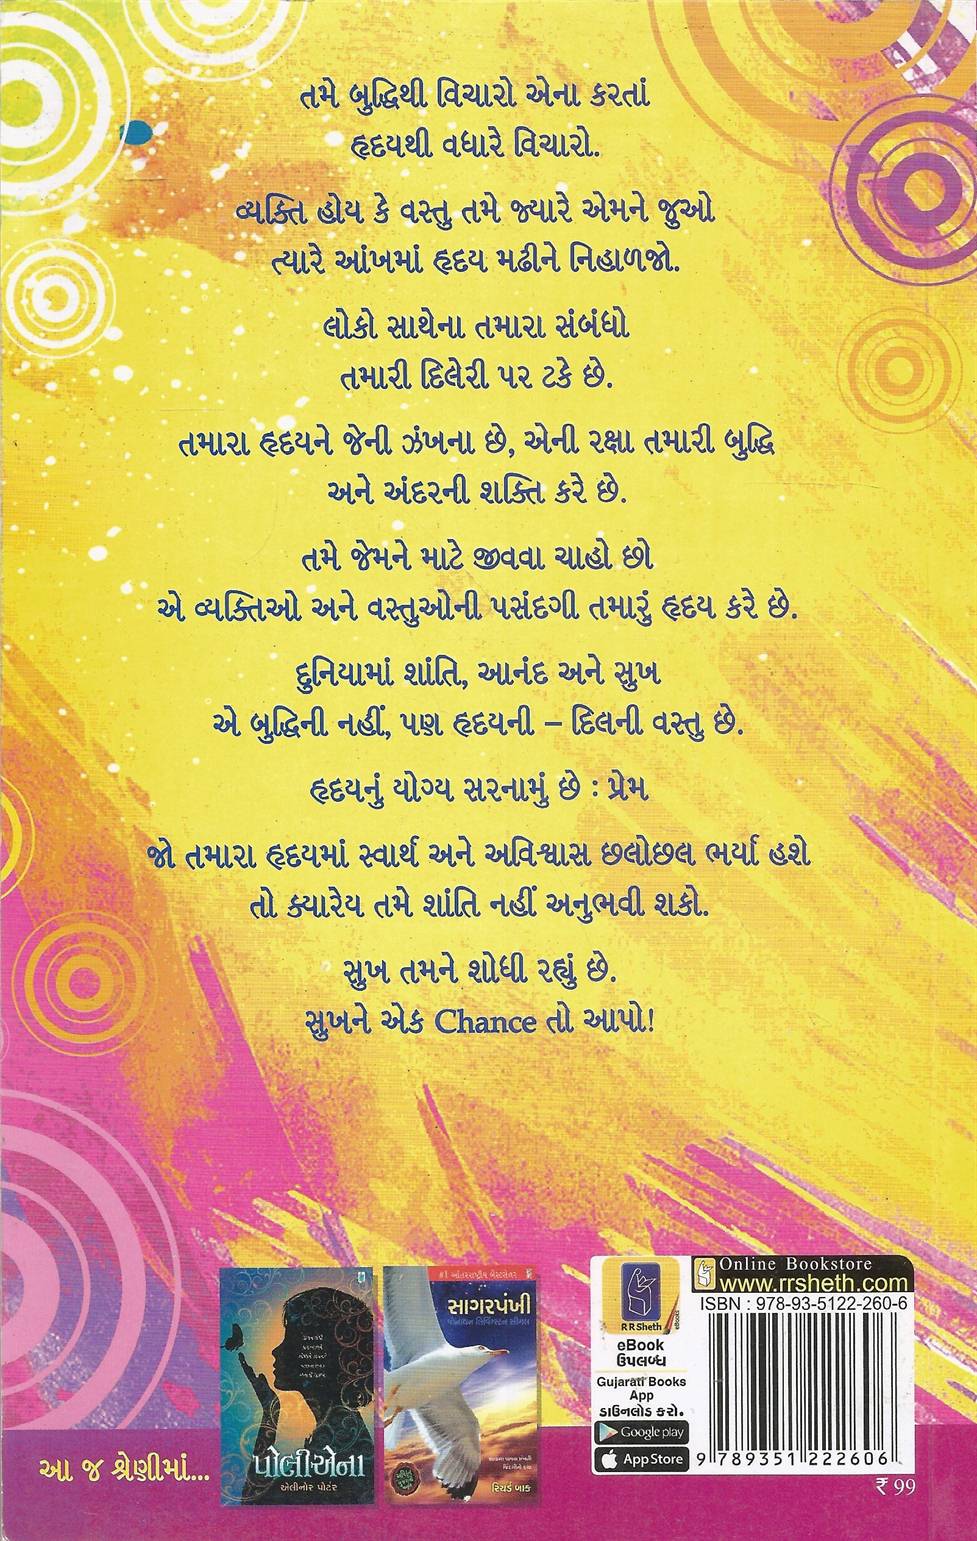 તમે બુદ્ધિથી વિચારો એના કરતાં
હૃદયથી વધારે વિચારો.
વ્યક્તિ હોય કે વસ્તુ તમે જ્યારે એમને જુઓ
ત્યારે આંખમાં હૃદય મઢીને નિહાળજો.
લોકો સાથેના તમારા સંબંધો
તમારી દિલેરી પર ટકે છે.
તમારા હૃદયને જેની ઝંખના છે, એની રક્ષા તમારી બુદ્ધિ
અને અંદરની શક્તિ કરે છે.
તમે જેમને માટે જીવવા ચાહો છો
એ વ્યક્તિઓ અને વસ્તુઓની પસંદગી તમારું હૃદય કરે છે.
દુનિયામાં શાંતિ, આનંદ અને સુખ
એ બુદ્ધિની નહીં, પણ હૃદયની – દિલની વસ્તુ છે.
હૃદયનું યોગ્ય સરનામું છે : પ્રેમ
જો તમારા હૃદયમાં સ્વાર્થ અને અવિશ્વાસ છલોછલ ભર્યા હશે
તો ક્યારેય તમે શાંતિ નહીં અનુભવી શકો.
સુખ તમને શોધી રહ્યું છે.
સુખને એક Chance તો આપો!
આ જ શ્રેણીમાં...
પોલીએના
એલીનોર પોર્ટર
#1 આંતરરાષ્ટ્રીય બેસ્ટસેલર
સાગરપંખી
જોનાથન લિવિંગ્સ્ટન સીગલ
રિચર્ડ બાક
R R Sheth
eBooks
eBook
ઉપલબ્ધ
Gujarati Books
App
ડાઉનલોડ કરો.
Google play
App Store
Online Bookstore
www.rrsheth.com
ISBN : 978-93-5122-260-6
9 789351 222606
₹ 99